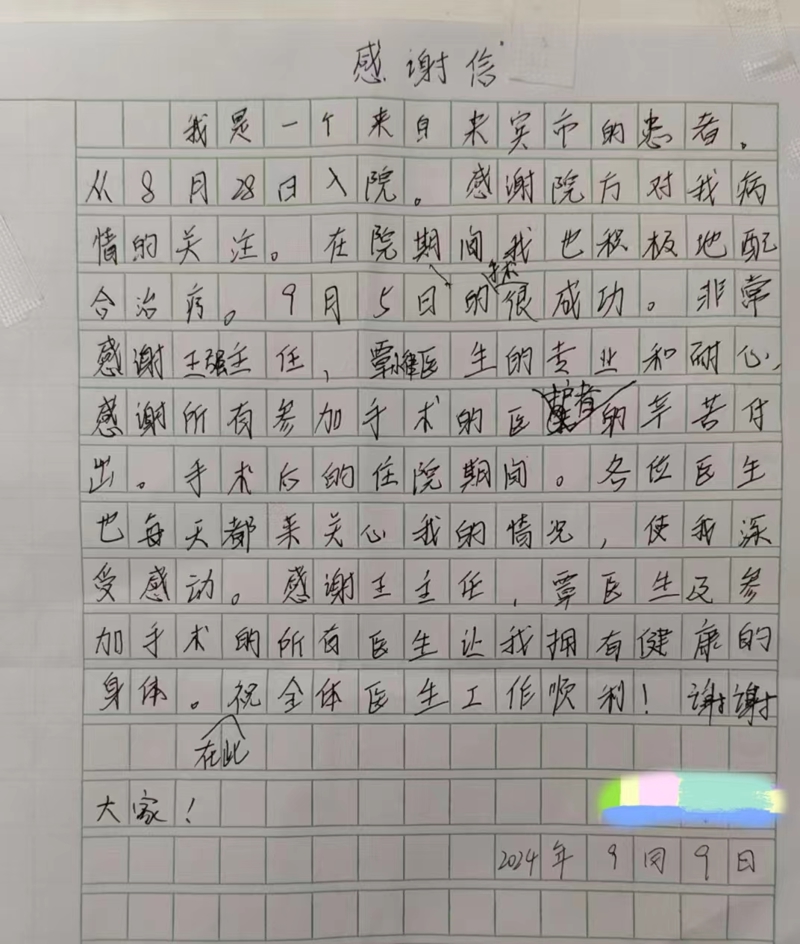 感谢信
我是一个来自来宾市的患者，
从8月28日入院。感谢院方对我病
情的关注。在院期间我也积极地配
合治疗。9月5日的手术很成功。非常
感谢王强主任，覃雄医生的专业和耐心，
感谢所有参加手术的医护者的辛苦付
出。手术后的住院期间。各位医生
也每天都来关心我的情况，使我深
受感动。感谢王主任，覃医生及参
加手术的所有医生让我拥有健康的
身体。在此祝全体医生工作顺利！谢谢
大家！
2024年9月9日